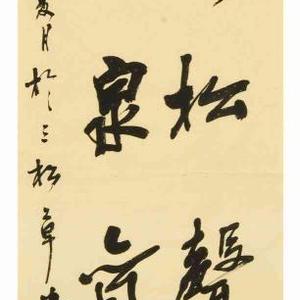 松聲
泉
夏月於三松草